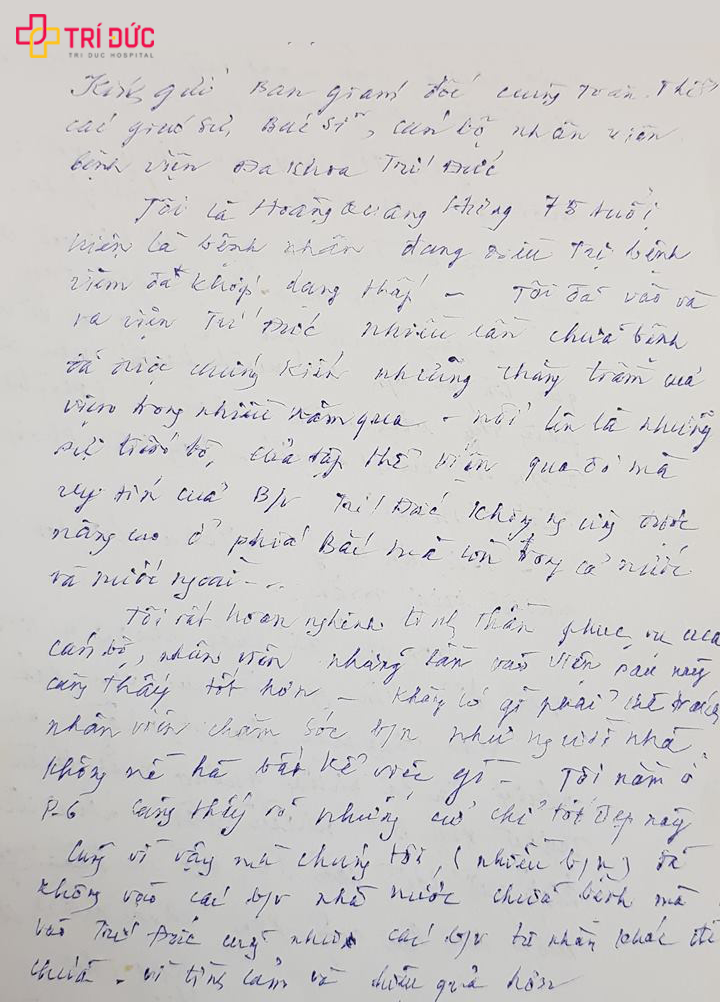 TRÍ ĐỨC
TRI DUC HOSPITAL
Kính gửi Ban giám đốc cùng toàn thể
các giáo sư, Bác sĩ, cán bộ nhân viên
bệnh viện Đa khoa Trí Đức
Tôi là Hoàng Quang Hưng 75 tuổi
hiện là bệnh nhân đang điều trị bệnh
viêm đa khớp dạng thấp - Tôi đã vào và
ra viện Trí Đức nhiều lần chữa bệnh
đã được chứng kiến những thăng trầm của
viện trong nhiều năm qua - nổi lên là những
sự tiến bộ, của tập thể viện qua đó mà
uy tín của B/v Trí Đức không ngừng được
nâng cao ở phía Bắc mà còn trong cả nước
và nước ngoài - ..
Tôi rất hoan nghênh tinh thần phục vụ của
cán bộ, nhân viên những lần vào viện sau này
càng thấy tốt hơn - không có gì phải chê trách
nhân viên chăm sóc b/n như người nhà
không nề hà bất kể việc gì - Tôi nằm ở
P-6 càng thấy rõ những cử chỉ tốt đẹp này
Cũng vì vậy mà chúng tôi, (nhiều b/n) đã
không vào các b/v nhà nước chữa bệnh mà
vào Trí Đức cũng như các b/v tư nhân khác để
chữa - vì tình cảm và hiệu quả hơn